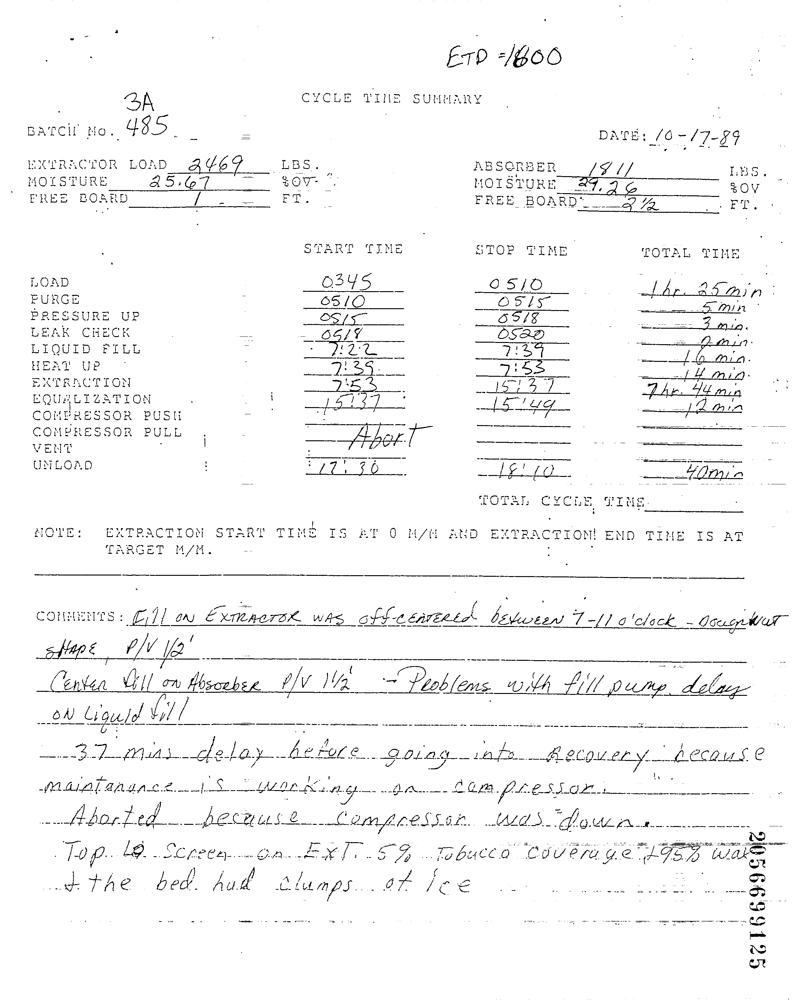 ETD = 1800
CYCLE TIME SUMMARY
3A
BATCH No. 485
DATE: 10-17-89
EXTRACTOR LOAD 2469 LBS. ABSORBER 1811 LBS.
MOISTURE 25.67 %OV MOISTURE 29.26 %OV
FREE BOARD 1 FT. FREE BOARD 2 1/2 FT.
START TIME STOP TIME TOTAL TIME
LOAD 0345 0510 1 hr. 25 min
PURGE 0510 0515 5 min
PRESSURE UP 0515 0518 3 min.
LEAK CHECK 0518 0520 2 min.
LIQUID FILL 7:22 7:39 16 min.
HEAT UP 7:39 7:53 14 min.
EXTRACTION 7:53 15:37 7 hr. 44 min
EQUALIZATION 15:37 15:49 12 min
COMPRESSOR PUSH
COMPRESSOR PULL Abort
VENT
UNLOAD 17:30 18:10 40 min
TOTAL CYCLE TIME
NOTE: EXTRACTION START TIME IS AT 0 M/M AND EXTRACTION END TIME IS AT
TARGET M/M.
COMMENTS: Fill ON EXTRACTOR WAS off-centered between 7-11 o'clock - Doughnut
SHAPE, P/V 1/2'
Center fill on Absorber P/V 1 1/2' - Problems with fill pump, delay
ON Liquid fill
37 mins delay before going into Recovery because
maintanance is working on compressor.
Aborted because compressor was down.
Top Screen on EXT. 5% Tobacco coverage, +95% wax
+ the bed had clumps of ice
2056699125